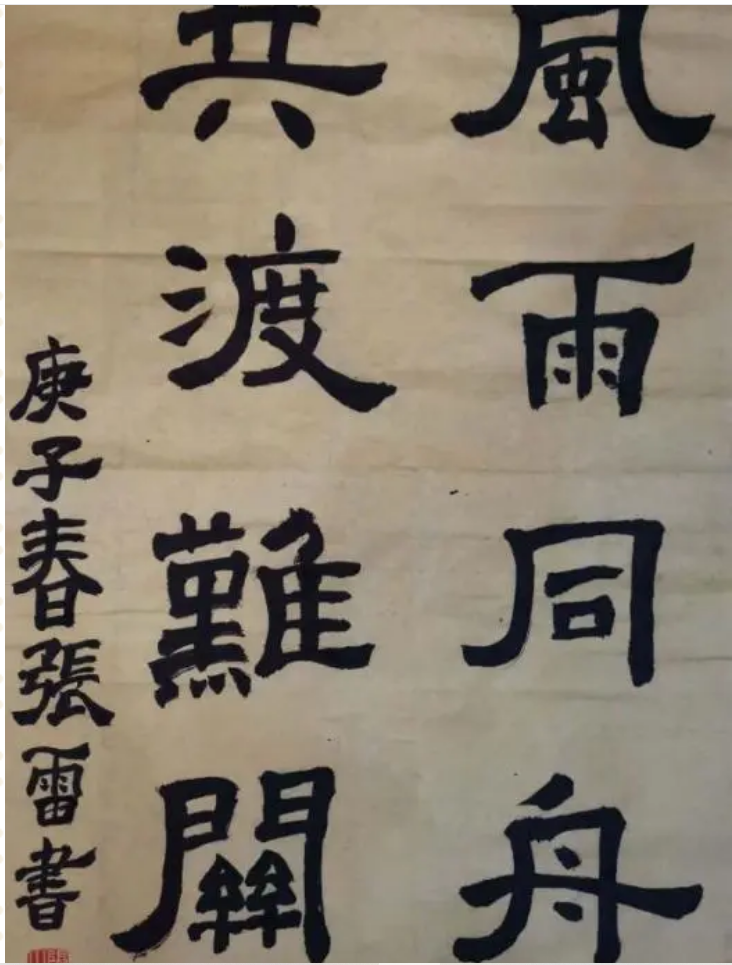 風雨同舟
共渡難關
庚子春張雷書